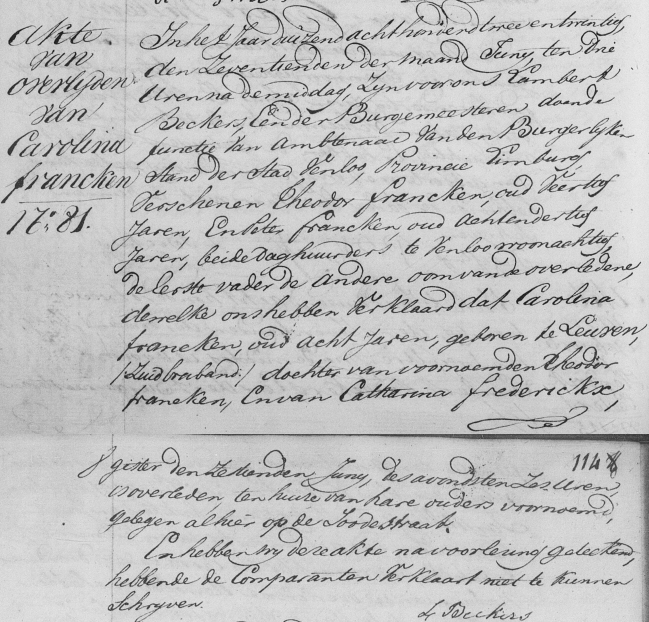 Akte
van
overlyden
van
Carolina
francken
N.º 81.
In het Jaar duizend acht honderd twee en twintig,
den Zeventienden der maand Juny, ten Drie
Uren na de middag, Zyn voor ons Lambert
Beckers, Een der Burgemeesteren doende
functie Van Ambtenaar Van den Burgerlyken
Stand der Stad Venlo, Provincie Limburg,
Verschenen Theodor francken, oud Veertig
Jaren, En Peter francken, oud achtendertig
Jaren, beide Daghuurders te Venloo woonachtig,
de Eerste vader de andere oom van de overledene,
dewelke ons hebben Verklaard dat Carolina
francken, oud acht Jaren, geboren te Leuven,
/Zuidbraband:/ dochter van voornoemden Theodor
francken, En van Catharina frederickx,
114
gister den Zestienden Juny, des avonds ten Zes Uren,
is overleden ten huize van hare ouders voornoemd,
gelegen alhier op de Joodestraat.
En hebben wy deze akte na voorlezing geteekend,
hebbende de Comparanten Verklaart niet te kunnen
Schryven.
L Beckers